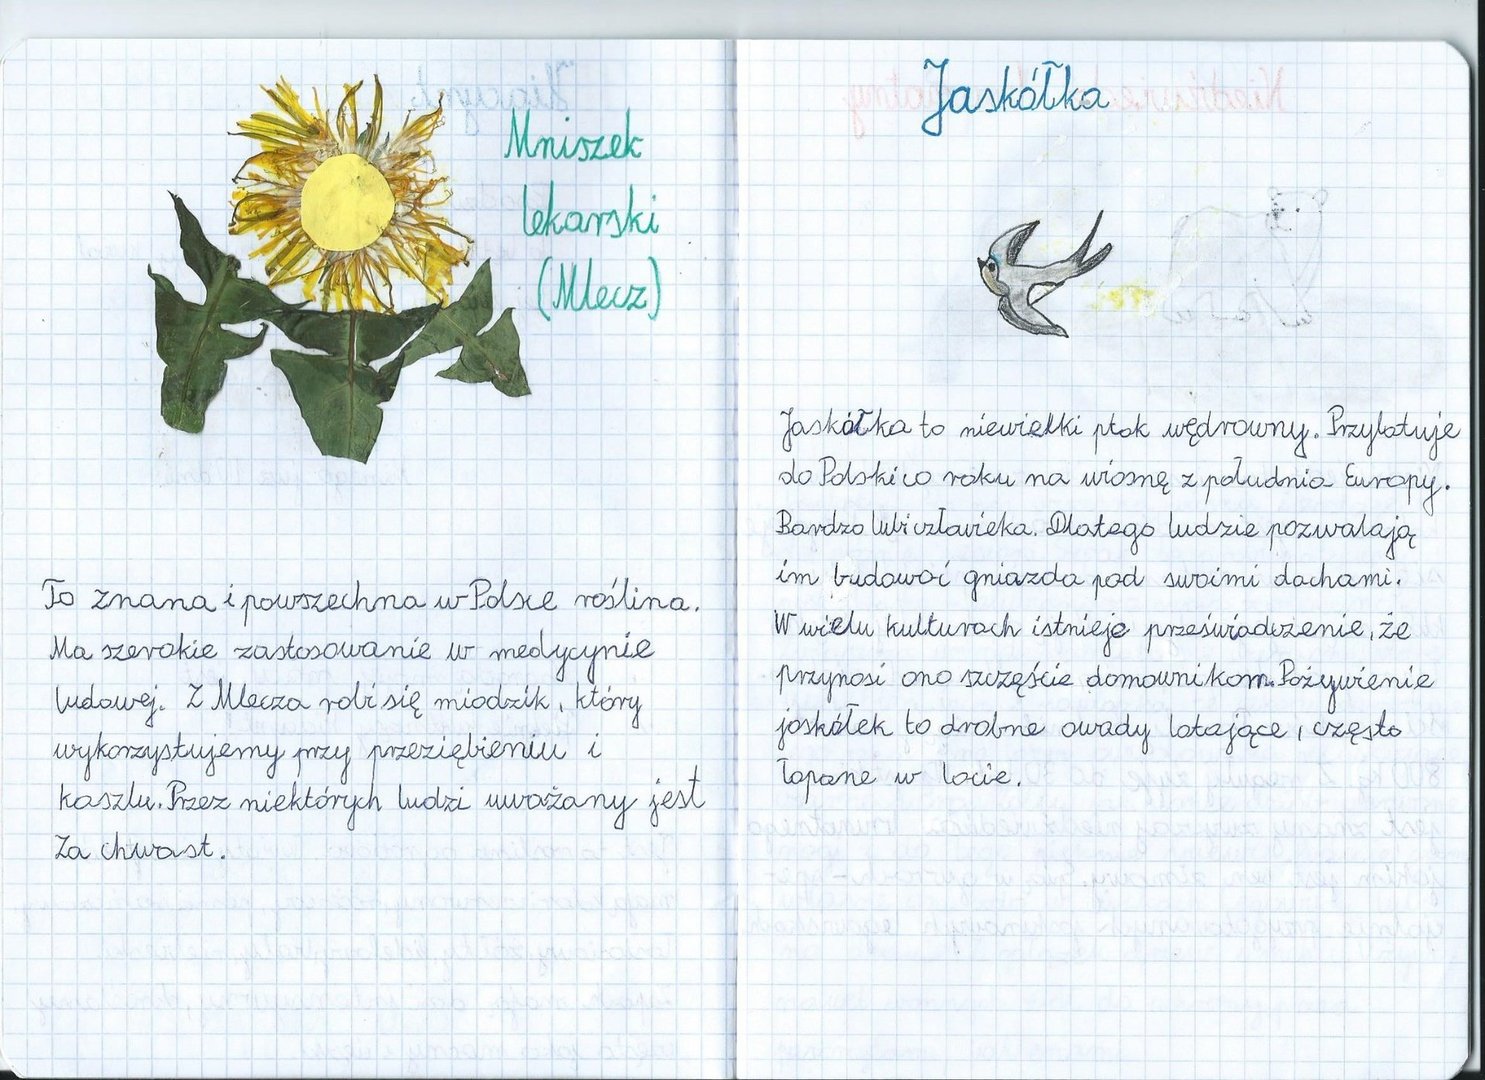 Mniszek
lekarski
(Mlecz)
To znana i powszechna w Polsce roślina.
Ma szerokie zastosowanie w medycynie
ludowej. Z Mlecza robi się miodzik, który
wykorzystujemy przy przeziębieniu i
kaszlu. Przez niektórych ludzi uważany jest
za chwast.
Jaskółka
Jaskółka to niewielki ptak wędrowny. Przylatuje
do Polski co roku na wiosnę z południa Europy.
Bardzo lubi człowieka. Dlatego ludzie pozwalają
im budować gniazda pod swoimi dachami.
W wielu kulturach istnieje przeświadczenie, że
przynosi ono szczęście domownikom. Pożywienie
jaskółek to drobne owady latające, często
łapane w locie.